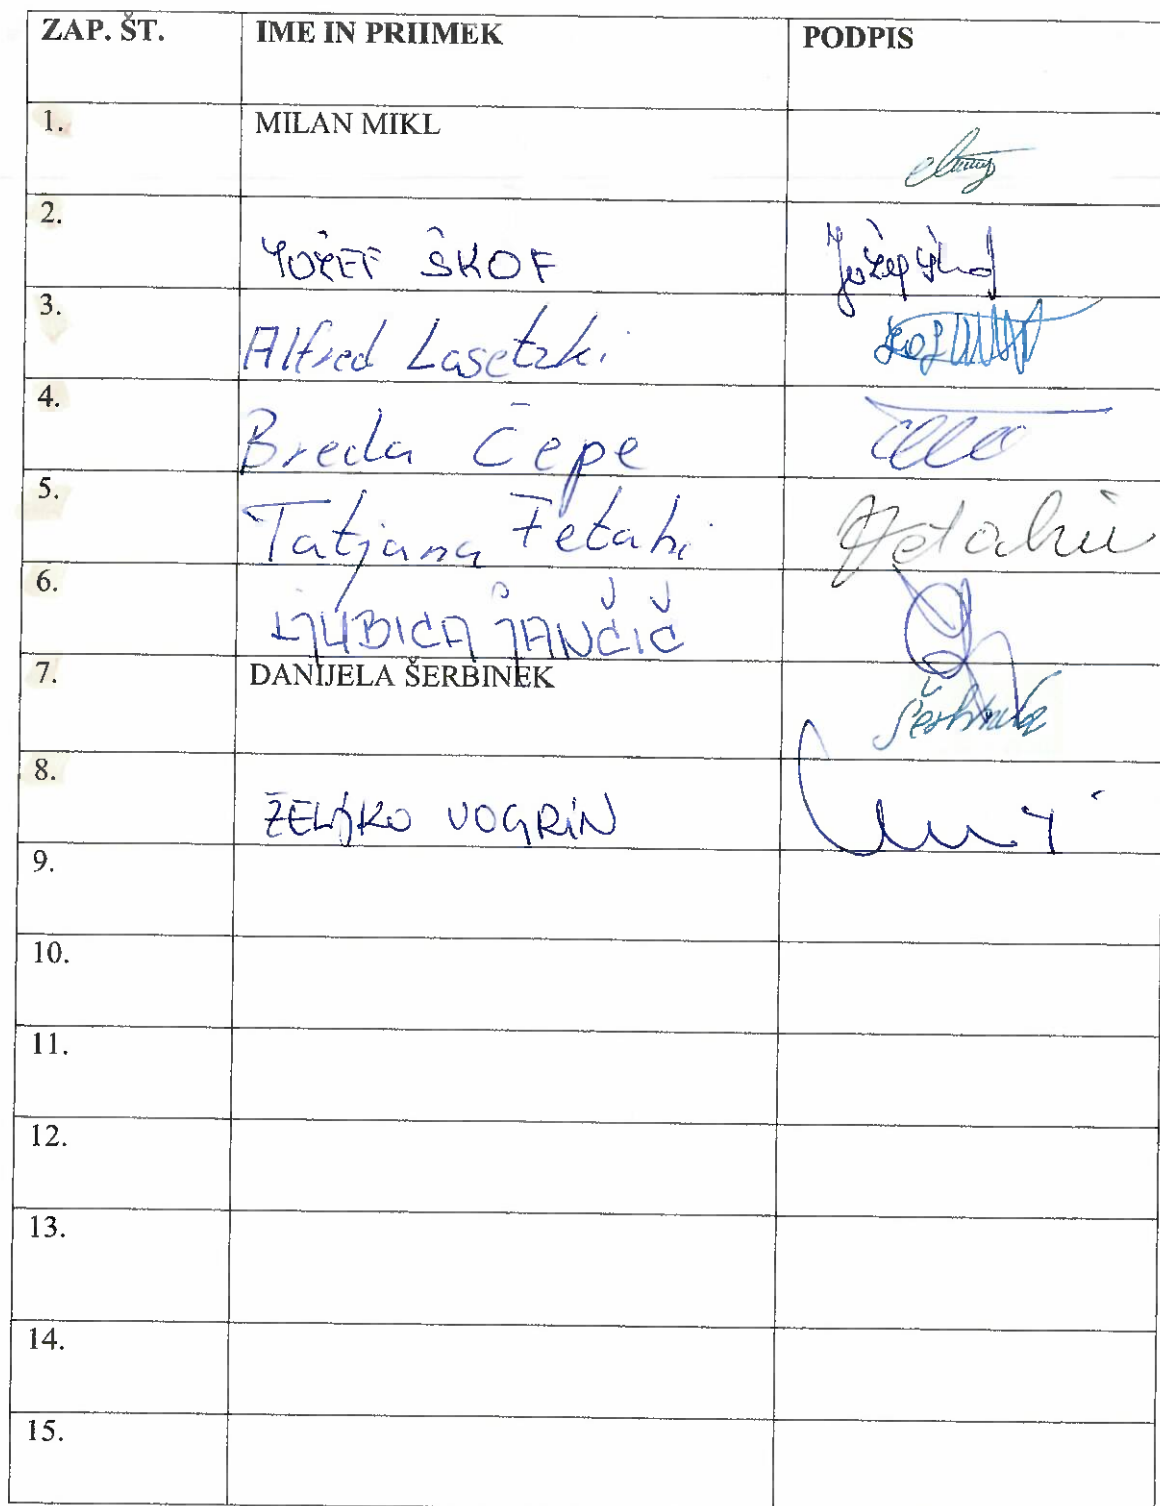 ZAP. ŠT. IME IN PRIIMEK PODPIS
1. MILAN MIKL
2. JOŽEF ŠKOF
3. Alfred Lasetzki
4. Breda Čepe
5. Tatjana Fetahi Fetahi
6. LJUBICA JANČIČ
7. DANIJELA ŠERBINEK Šerbinek
8. ŽELJKO VOGRIN
9.
10.
11.
12.
13.
14.
15.